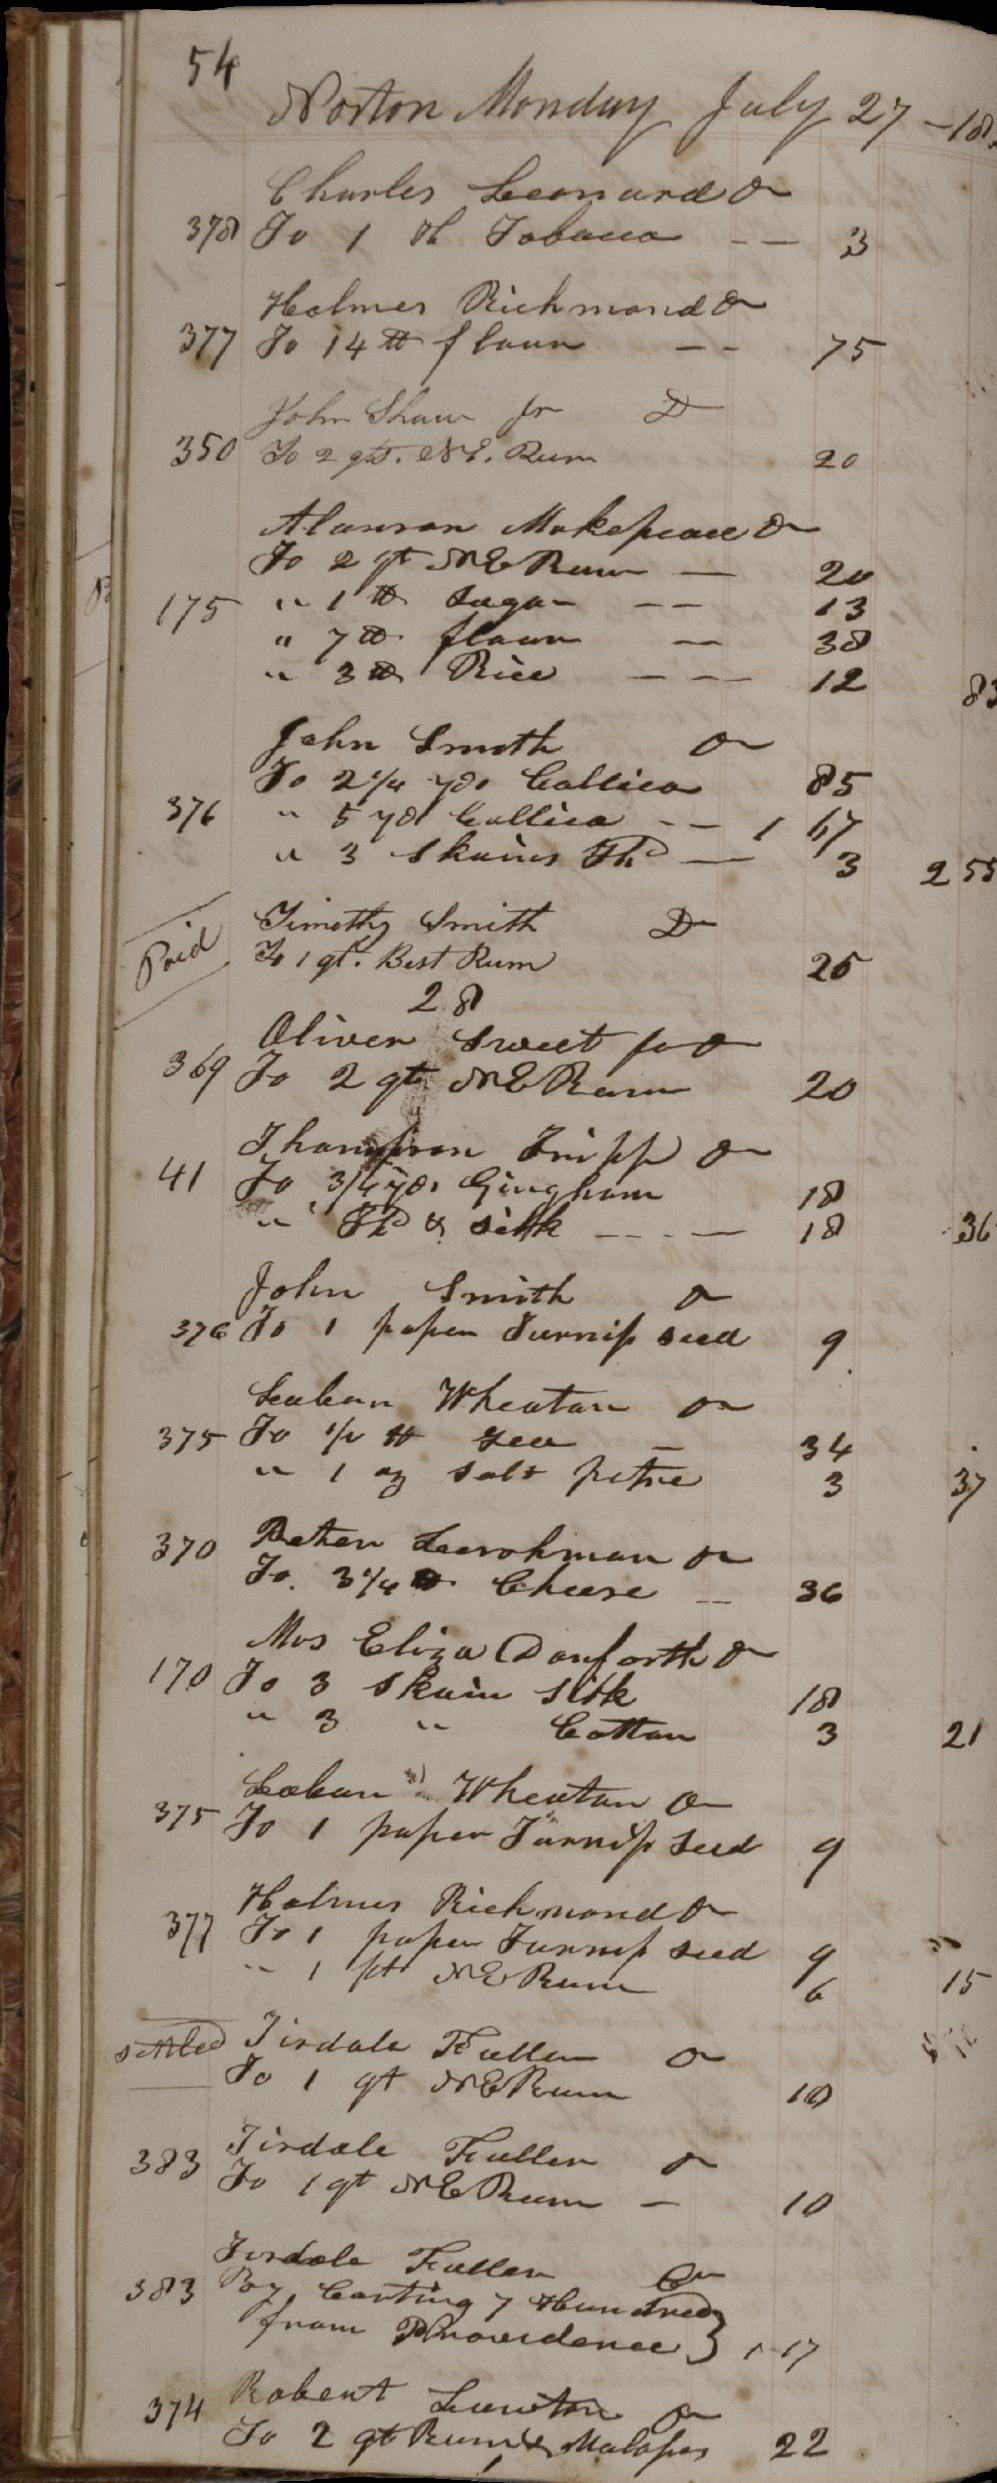 54
Norton Monday July 27 - 18
Charles Leonard Dr
378 To 1 lb Tobacco -- 3
Holmes Richmond Dr
377 To 14 lb flour -- 75
John Shaw Jr Dr
350 To 2 qts. N E. Rum 20
Alanson Makepeace Dr
To 2 qt N E Rum — 20
175 " 1 lb Sugar -- 13
" 7 lb flour — 38
" 3 lb Rice --- 12 83
John Smith Dr
To 2 1/4 yds Callico 85
376 " 5 yd Callico -- 1 67
" 3 Skains Thd — 3 2 55
Paid Timothy Smith Dr
To 1 qt. Best Rum 25
28
Oliver Sweet Jr Dr
369 To 2 qts N E Rum 20
Thompson Tripp Dr
41 To 3/4 yds Gingham 18
" Thd & silk ---- 18 36
John Smith Dr
376 To 1 paper Turnip seed 9
Laban Wheaton Dr
375 To 1/2 lb Tea — 34
" 1 oz Salt petre 3 37
370 Peter Dr
To 3 1/4 lb Cheese -- 36
Mrs Eliza Danforth Dr
170 To 3 Skain Silk 18
" 3 " Cotton 3 21
Laban Wheaton Dr
375 To 1 paper Turnip Seed 9
Holmes Richmond Dr
377 To 1 paper Turnip seed 9
" 1 pt N E Rum 6 15
settled Tisdale Fuller Dr
To 1 qt N E Rum 10
383 Tisdale Fuller Dr
To 1 qt N E Rum — 10
Tisdale Fuller Cr
383 By Carting 7 Hundred
from Providence } 1-17
374 Robert Dr
To 2 qt Rum & Molases 22